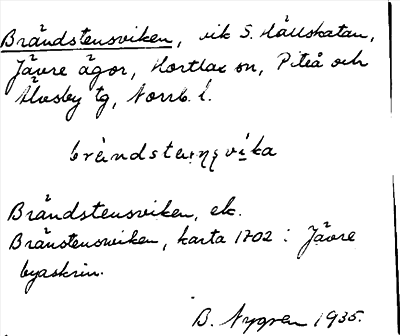 Brändstensviken, vik S. Hällskatan,
Jävre ägor, Hortlax sn, Piteå och
Älvsby tg, Norrb. l.
brändstęi̯ŋṣvika
Brändstensviken, ek.
Bränstenswiken, karta 1702 : Jävre
byaskrin.
B. Nygren 1935.